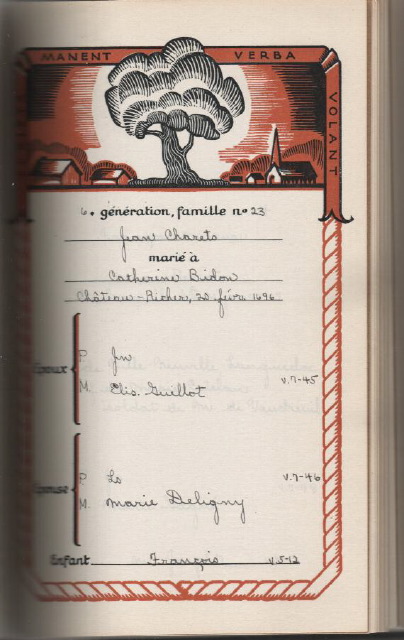 MANENT VERBA
VOLANT
6. génération, famille no 23
Jean Charets
marié à
Catherine Bidon
Château-Richer, 20 févr. 1696
P. Jn
M. Elis. Guillot v.7-45
P. Ls v.7-46
M. Marie Deligny
Enfant François v.5-12